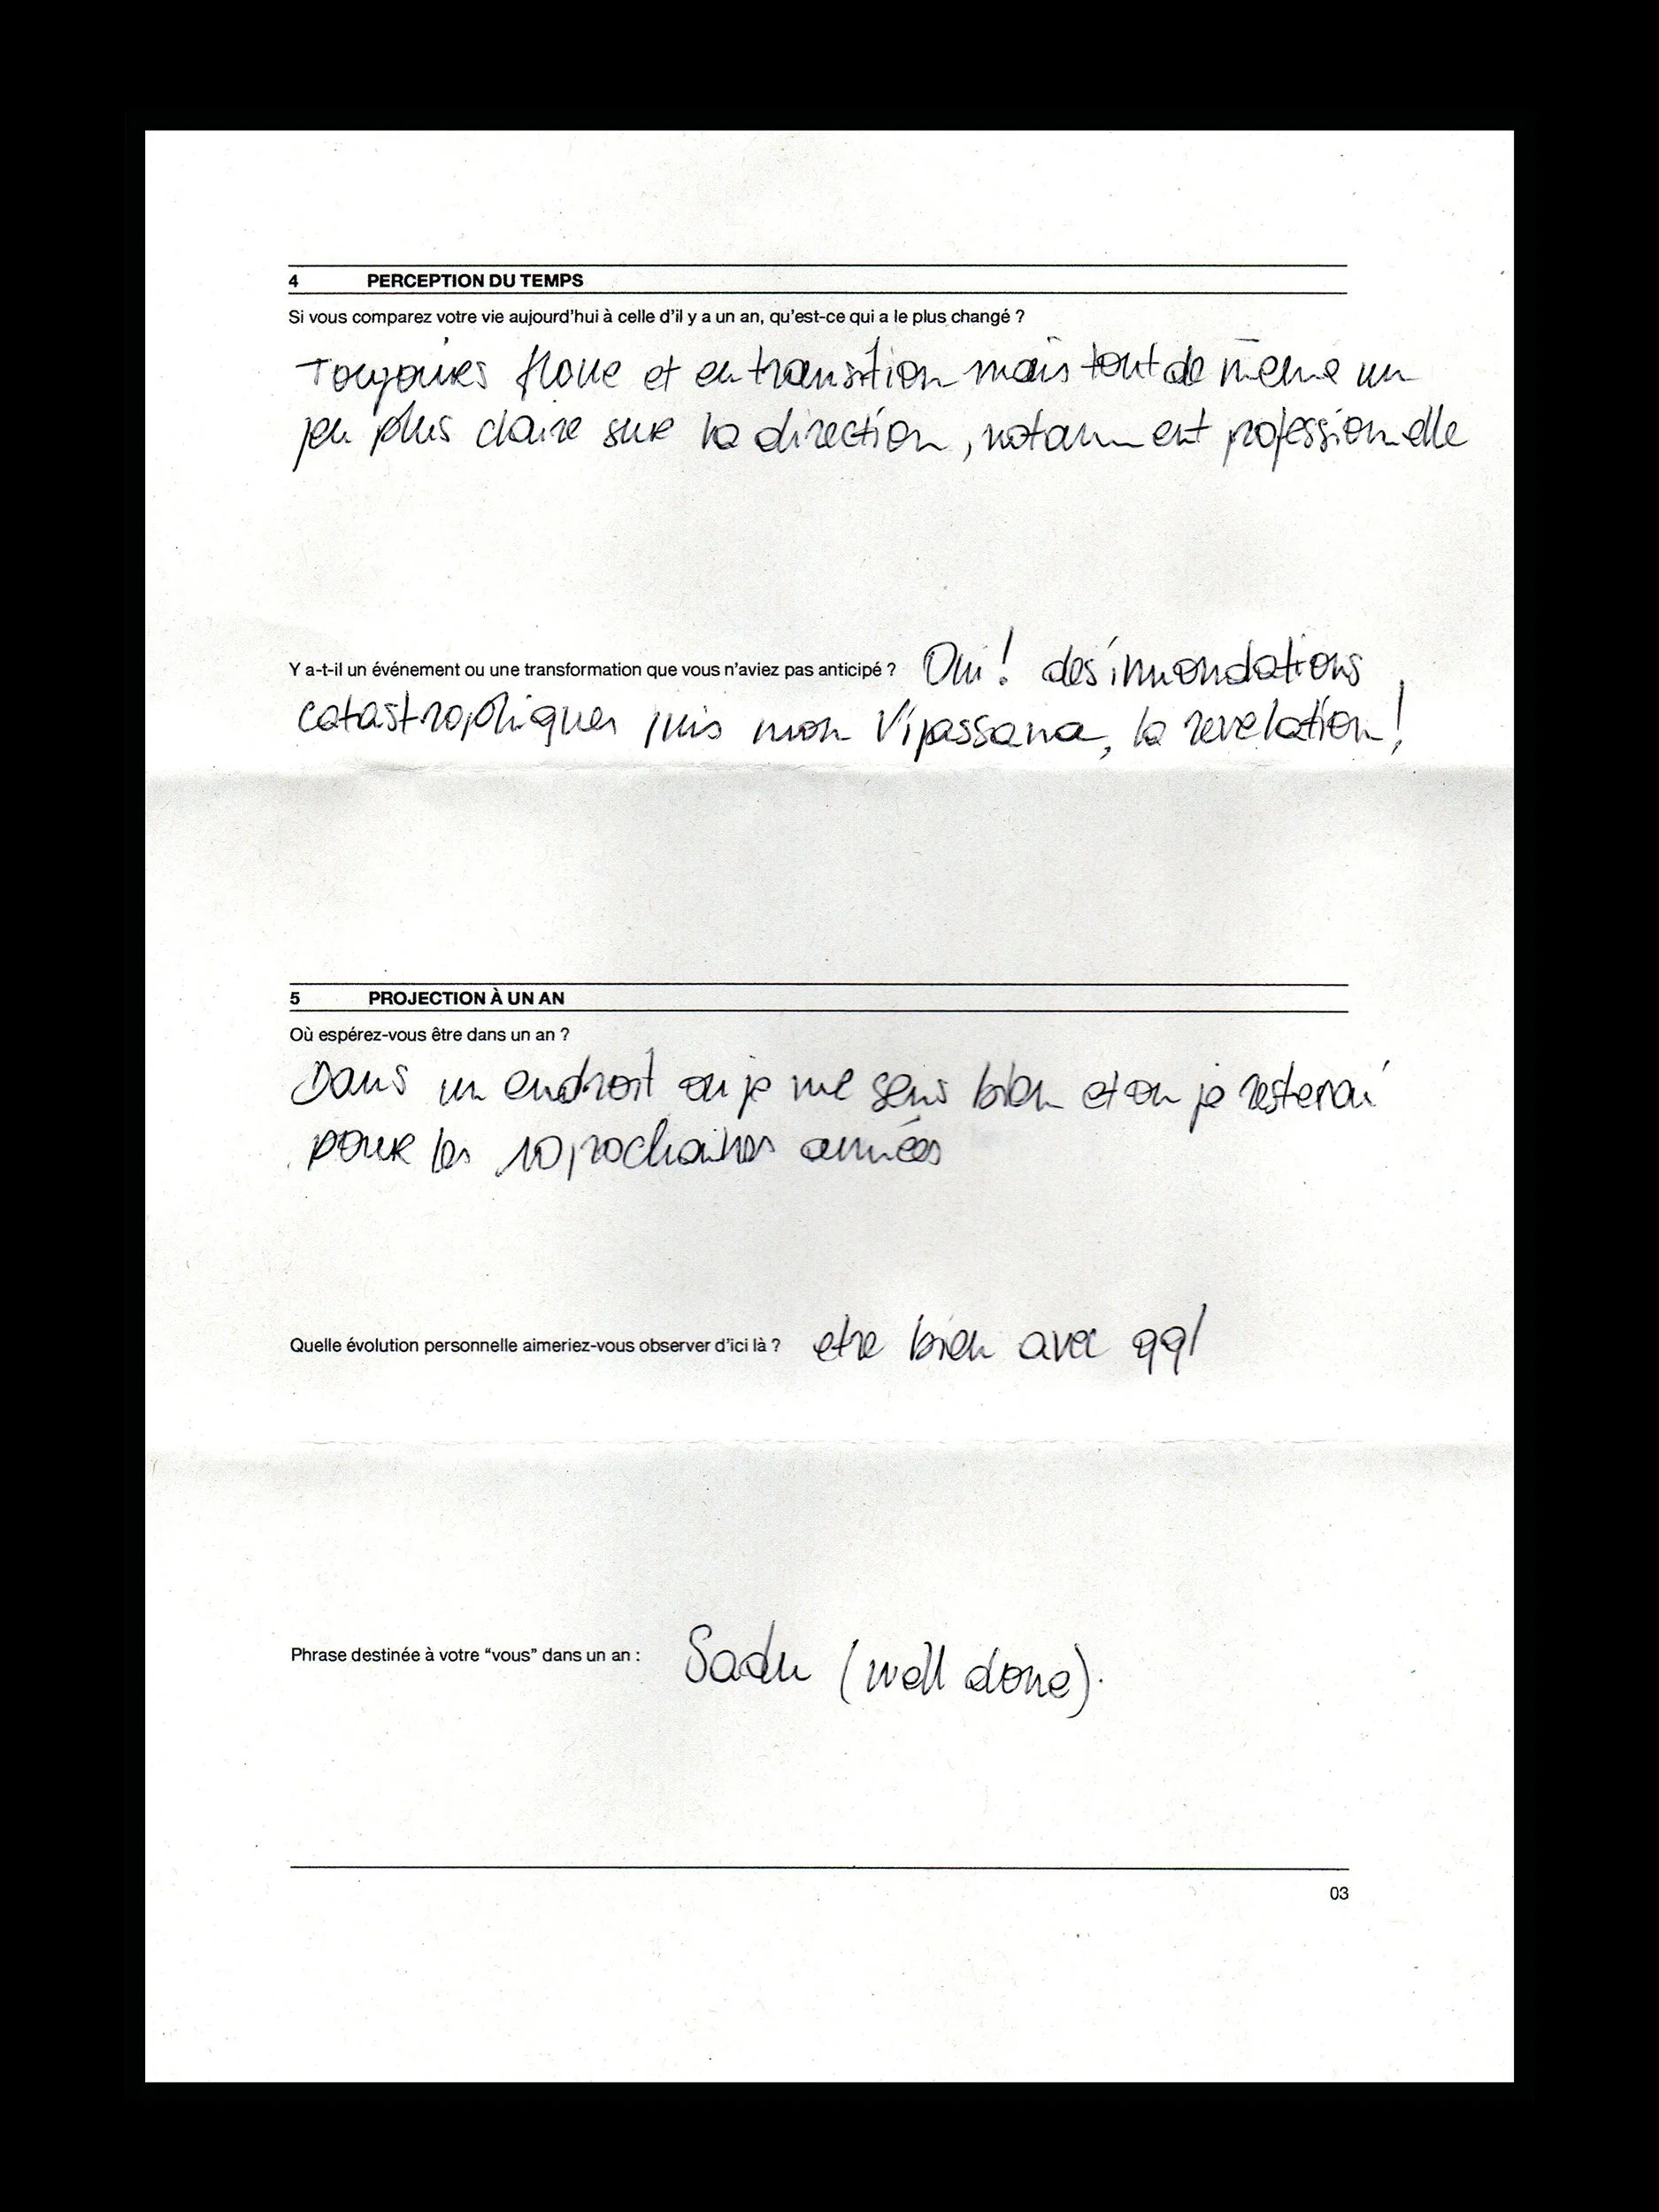 4 PERCEPTION DU TEMPS
Si vous comparez votre vie aujourd'hui à celle d'il y a un an, qu'est-ce qui a le plus changé ?
Toujours floue et en transition mais tout de même un
peu plus claire sur la direction, notamment professionnelle
Y a-t-il un événement ou une transformation que vous n'aviez pas anticipé ? Oui! des innondations
catastrophiques puis mon Vipassana, la revelation!
5 PROJECTION À UN AN
Où espérez-vous être dans un an ?
Dans un endroit ou je me sens bien et ou je resterai
pour les 10 prochaines années
Quelle évolution personnelle aimeriez-vous observer d'ici là ? etre bien avec qq1
Phrase destinée à votre “vous” dans un an : Sadu (well done).
03